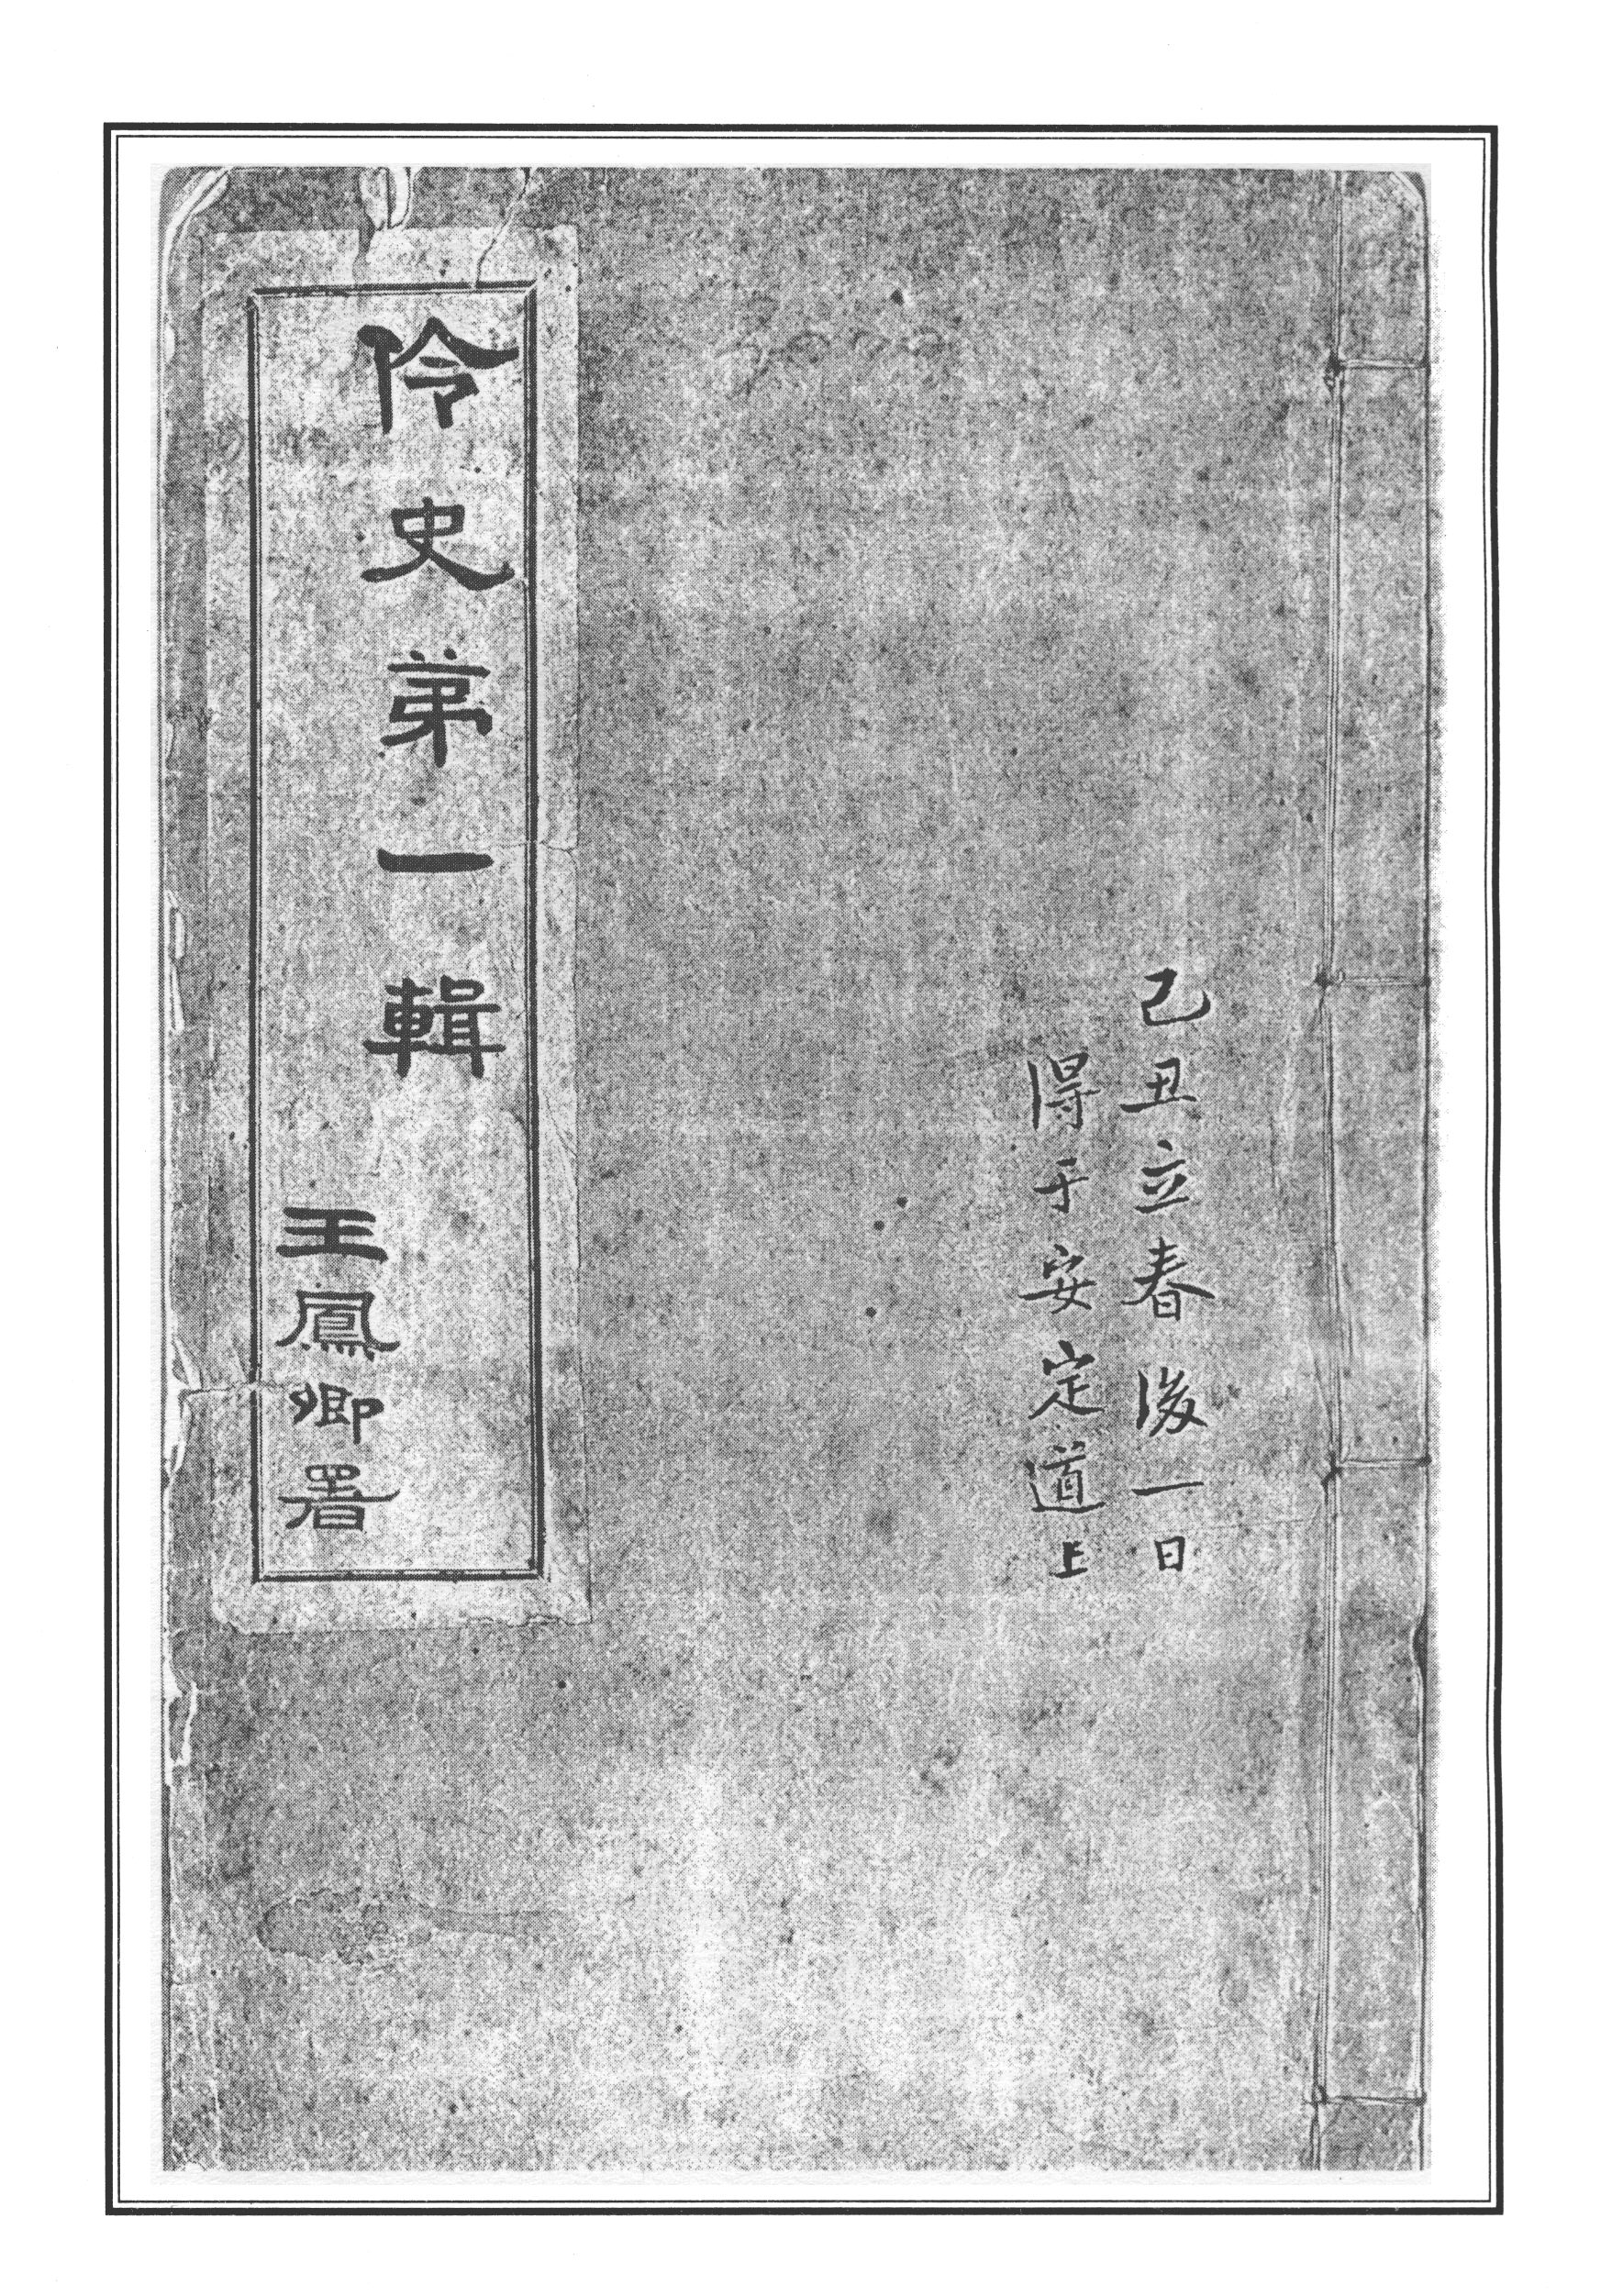 己丑立春後一日
得于安定道上
伶史弟一輯
王鳳卿署